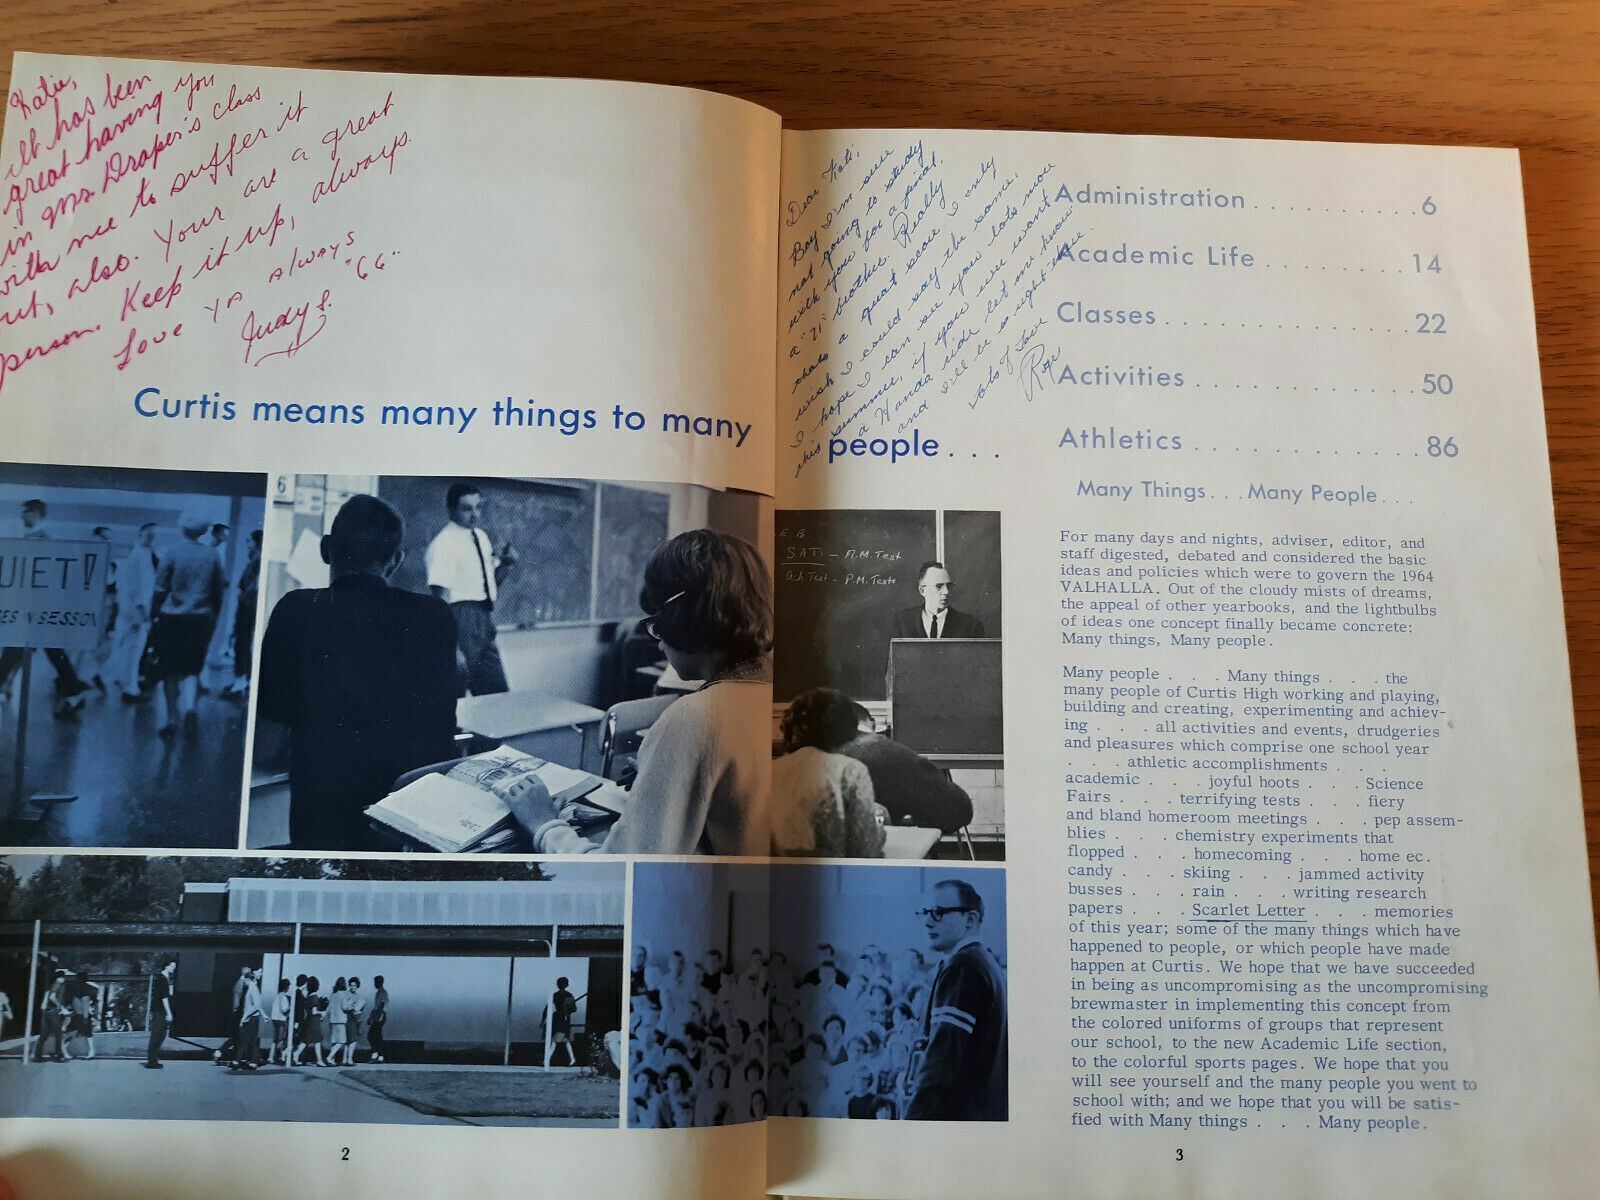 Katie,
It has been
great having you
in Mrs. Draper's class
with me to suffer it
out, also. Your are a great
person. Keep it up, always.
Love ya always
Judy S. "66"
Curtis means many things to many
UIET!
ES IN SESSION
6
2
Dear Kati,
Boy I'm sure
not going to study
with you for a final.
a "71" brother. Really
thats a great score. I only
wish I could say the same,
I hope I can see you lots more
this summer, if you ever want
a Honda ride let me know
and I'll be right there.
Lots of Love
people . . .
E.B.
SAT. - A.M. Test
Ach Test - P.M. Tests
Administration . . . . . . . . . . 6
Academic Life . . . . . . . . 14
Classes . . . . . . . . . . . . . 22
Activities . . . . . . . . . . . . 50
Athletics . . . . . . . . . . . . 86
Many Things . . . Many People . . .
For many days and nights, adviser, editor, and
staff digested, debated and considered the basic
ideas and policies which were to govern the 1964
VALHALLA. Out of the cloudy mists of dreams,
the appeal of other yearbooks, and the lightbulbs
of ideas one concept finally became concrete:
Many things, Many people.
Many people . . . Many things . . . the
many people of Curtis High working and playing,
building and creating, experimenting and achiev-
ing . . . all activities and events, drudgeries
and pleasures which comprise one school year
. . . athletic accomplishments . . .
academic . . . joyful hoots . . . Science
Fairs . . . terrifying tests . . . fiery
and bland homeroom meetings . . . pep assem-
blies . . . chemistry experiments that
flopped . . . homecoming . . . home ec.
candy . . . skiing . . . jammed activity
busses . . . rain . . . writing research
papers . . . Scarlet Letter . . . memories
of this year; some of the many things which have
happened to people, or which people have made
happen at Curtis. We hope that we have succeeded
in being as uncompromising as the uncompromising
brewmaster in implementing this concept from
the colored uniforms of groups that represent
our school, to the new Academic Life section,
to the colorful sports pages. We hope that you
will see yourself and the many people you went to
school with; and we hope that you will be satis-
fied with Many things . . . Many people.
3